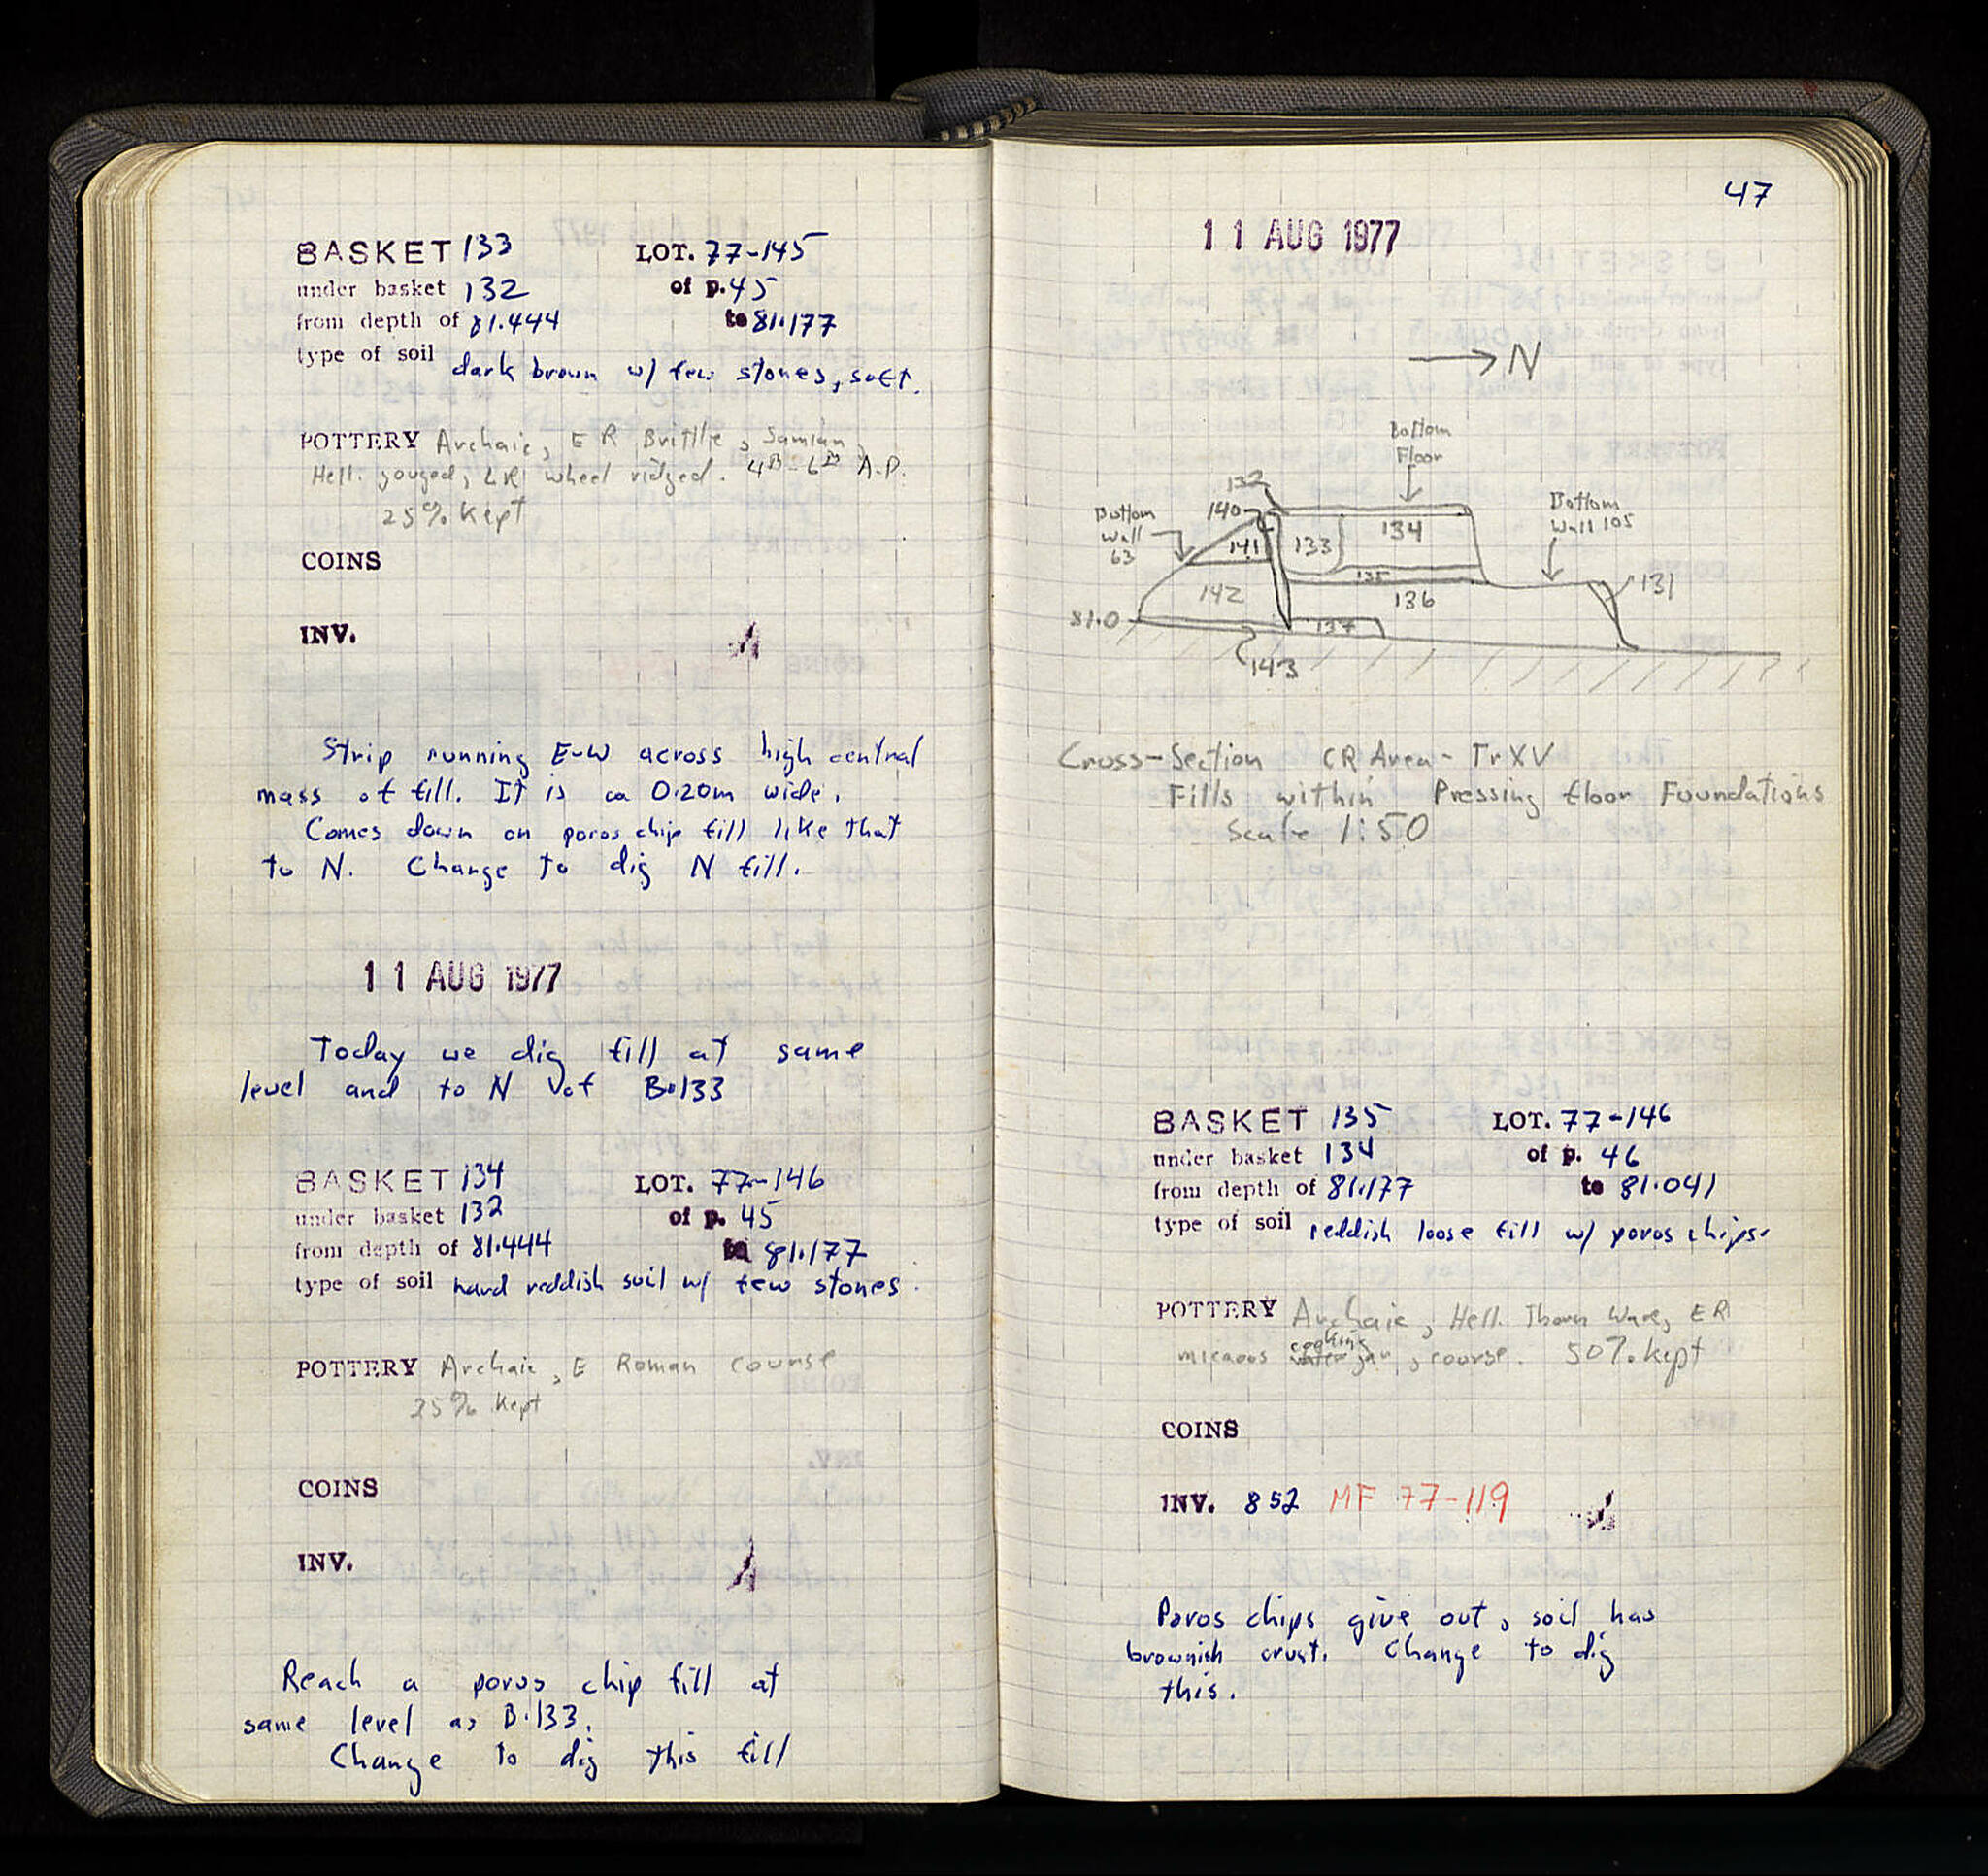 BASKET 133 LOT. 77-145
under basket 132 of p. 45
from depth of 81.444 to 81.177
type of soil dark brown w/ few stones, soft.
POTTERY Archaic, E R Brittle, Samian,
Hell. gouged, LR wheel ridged. 4th-6th A.D.
25% Kept
COINS
INV.
Strip running E-W across high central
mass of fill. It is ca 0.20m wide.
Comes down on poros chip fill like that
to N. Change to dig N fill.
11 AUG 1977
Today we dig fill at same
level and to N of B.133
BASKET 134 LOT. 77-146
under basket 132 of p. 45
from depth of 81.444 to 81.177
type of soil hard reddish soil w/ few stones.
POTTERY Archaic, E Roman course
25% Kept
COINS
INV.
Reach a poros chip fill at
same level as B.133.
Change to dig this fill
47
11 AUG 1977
→ N
Bottom
Floor
132
140
Bottom
Wall
63
141
133
134
Bottom
Wall 105
135
142
136
131
81.0
137
143
Cross-Section CR Area - Tr XV
Fills within Pressing floor Foundations
Scale 1:50
BASKET 135 LOT. 77-146
under basket 134 of p. 46
from depth of 81.177 to 81.041
type of soil reddish loose fill w/ poros chips.
POTTERY Archaic, Hell. Thorn Ware, ER
cooking
micaous water jar, course. 50% kept
COINS
INV. 852 MF 77-119
Poros chips give out, soil has
brownish crust. Change to dig
this.